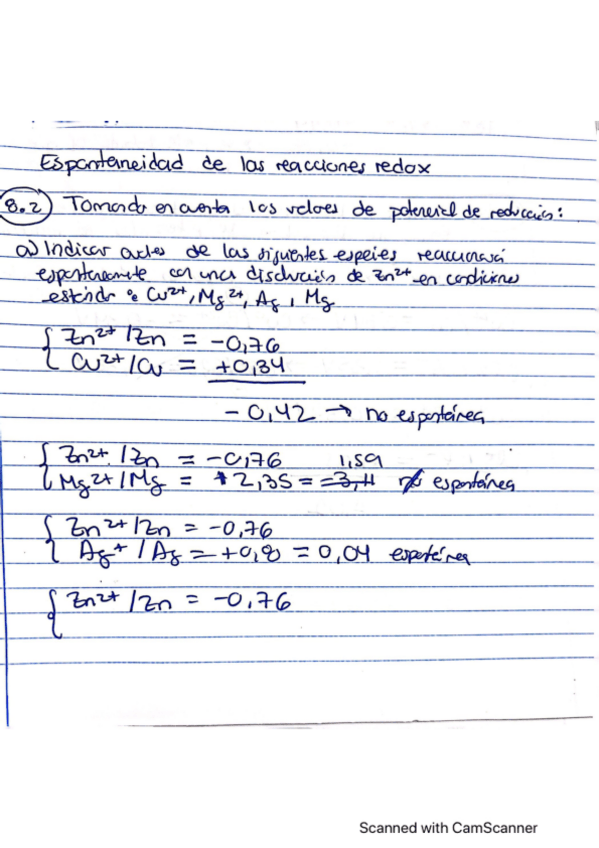 Espontaneidad de las reacciones redox
8.2) Tomando en cuenta los valores de potencial de reducción:
a) Indicar cuales de las siguientes especies reaccionará
espontaneamente con una disolución de Zn²⁺ en condiciones
estándar: Cu²⁺, Mg²⁺, Ag, Mg
Zn²⁺/Zn = -0,76
Cu²⁺/Cu = +0,34
-0,42 → no espontánea
Zn²⁺/Zn = -0,76 1,59
Mg²⁺/Mg = +2,35 = -3,11 no espontánea
Zn²⁺/Zn = -0,76
Ag⁺/Ag = +0,8 = 0,04 espontánea
Zn²⁺/Zn = -0,76
Scanned with CamScanner